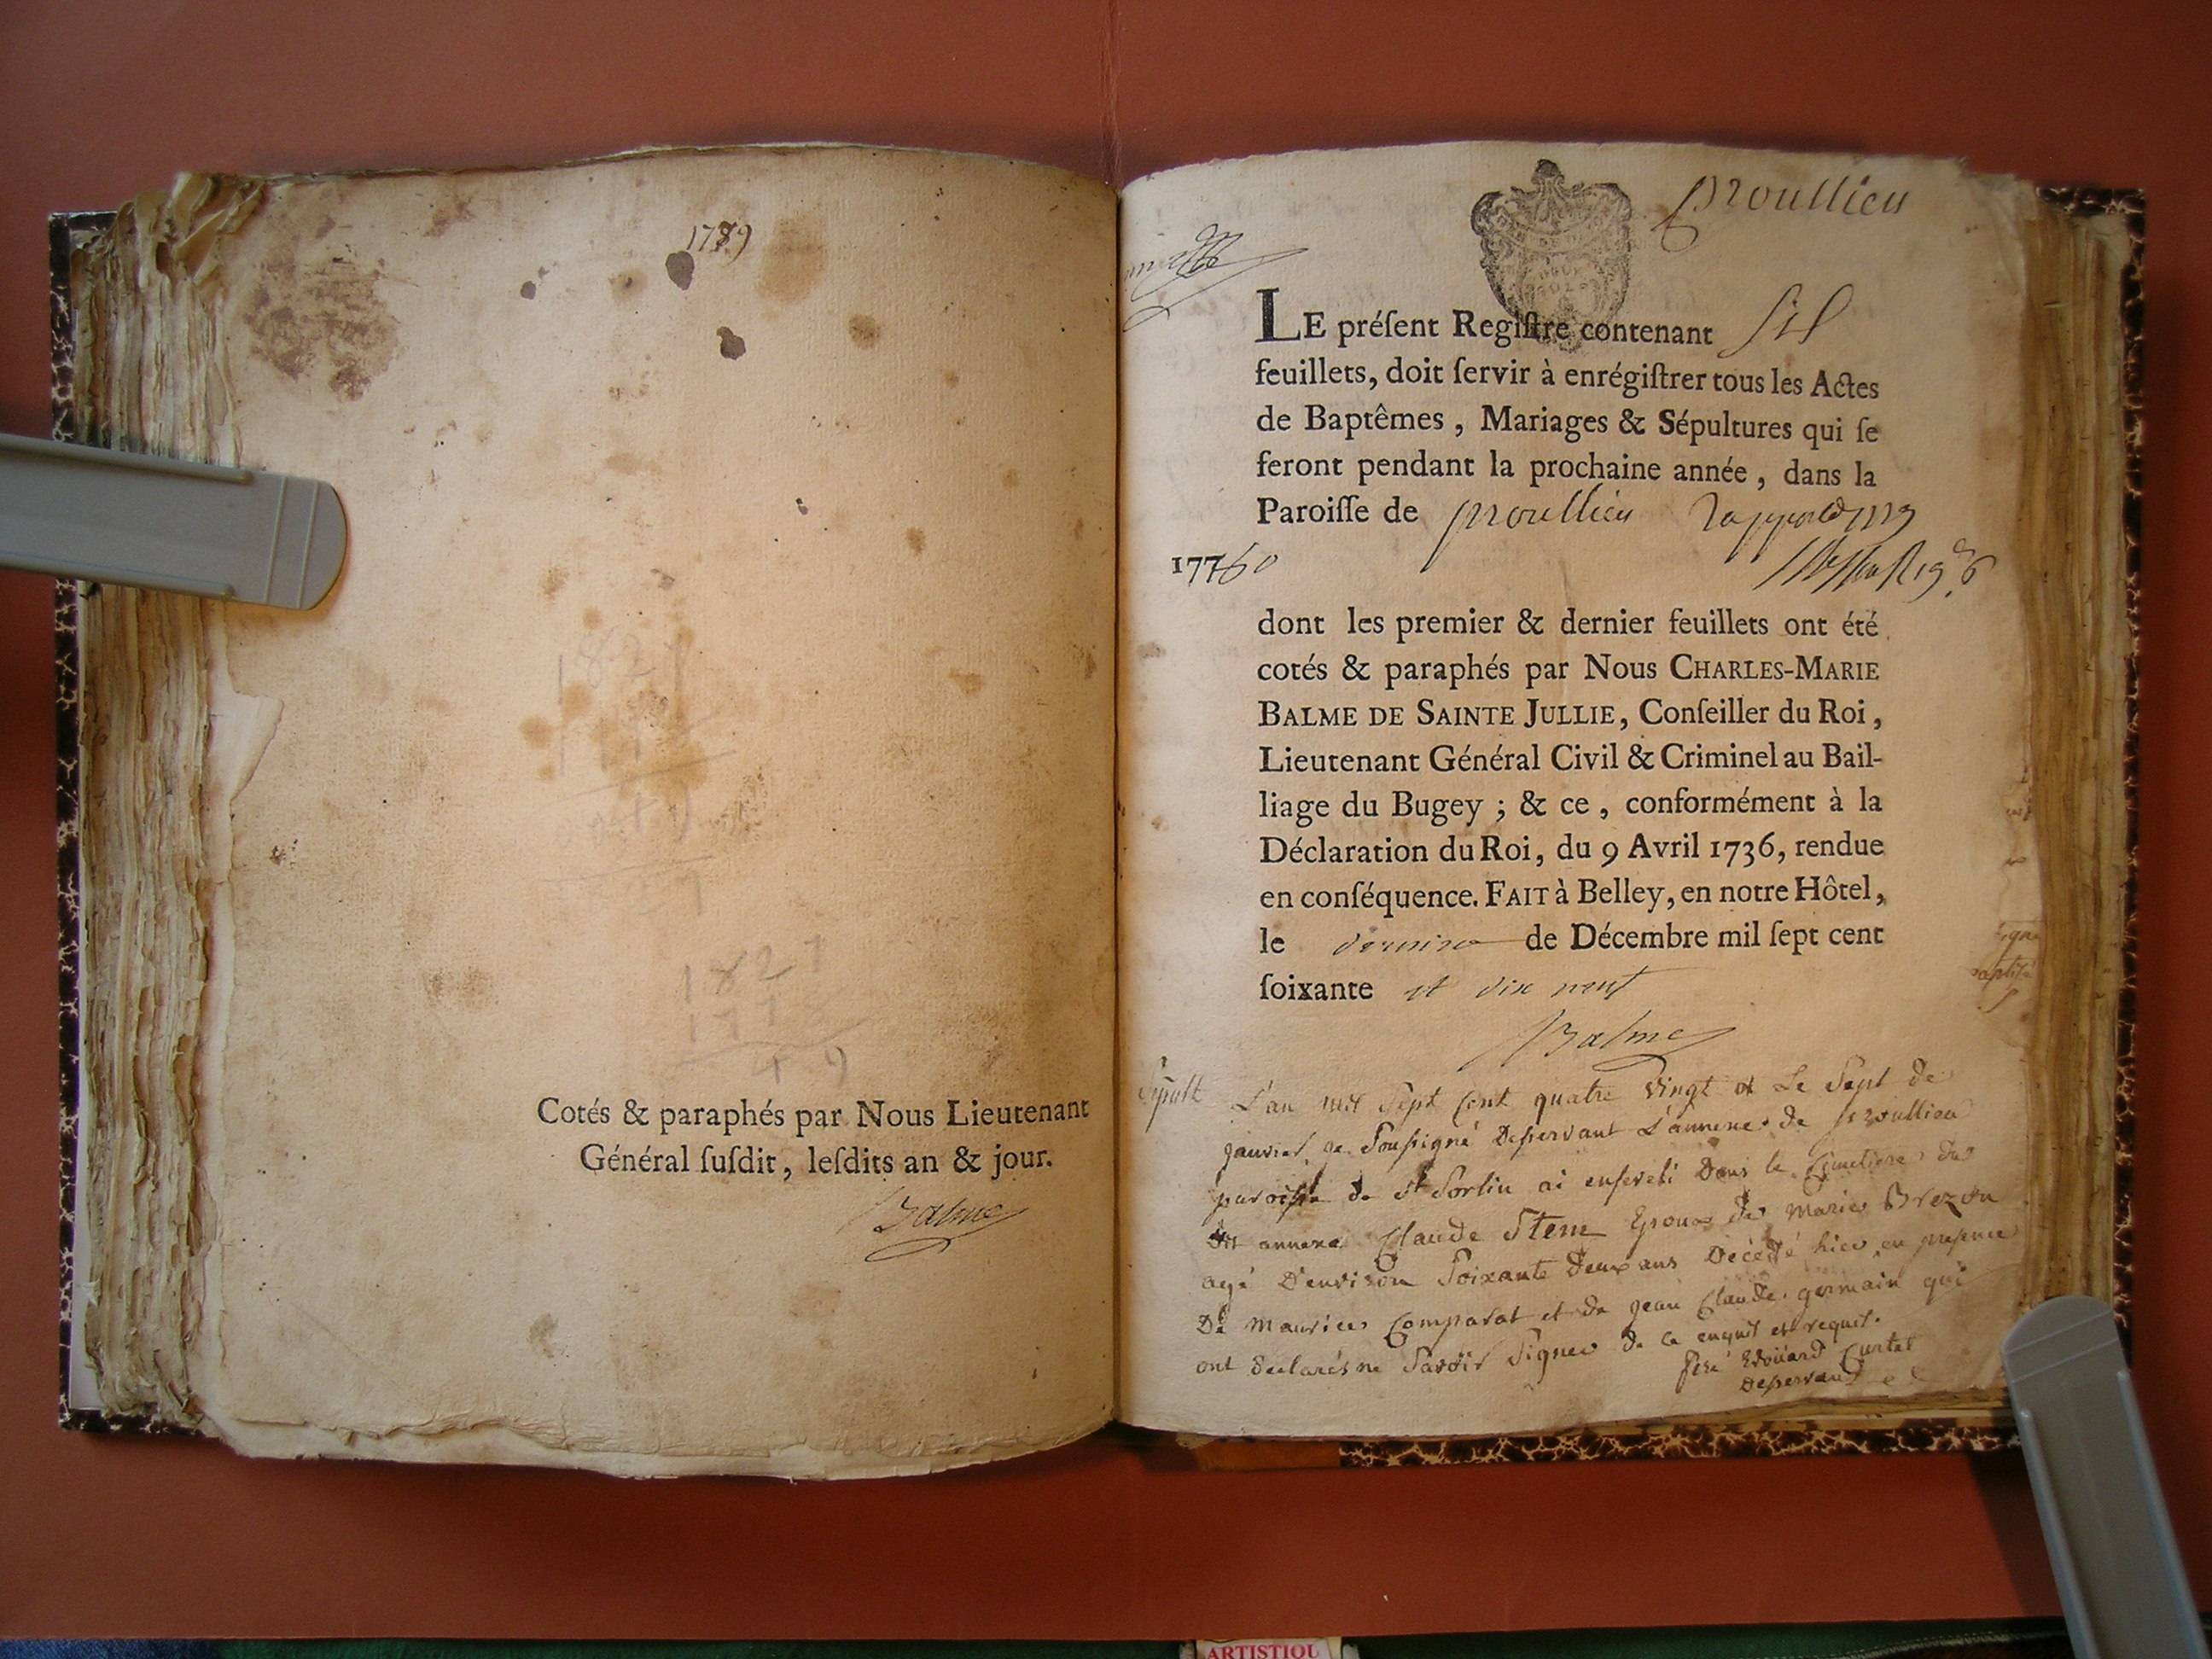 1789
1827
1778
49
Cotés & paraphés par Nous Lieutenant
Général ſuſdit, leſdits an & jour.
Balme
proullieu
LE préſent Regiſtre contenant six
feuillets, doit ſervir à enrégiſtrer tous les Actes
de Baptêmes, Mariages & Sépultures qui ſe
feront pendant la prochaine année, dans la
Paroiſſe de proullieu
177
dont les premier & dernier feuillets ont été
cotés & paraphés par Nous CHARLES-MARIE
BALME DE SAINTE JULLIE, Conſeiller du Roi,
Lieutenant Général Civil & Criminel au Bail-
liage du Bugey ; & ce, conformément à la
Déclaration du Roi, du 9 Avril 1736, rendue
en conſéquence. FAIT à Belley, en notre Hôtel,
le dernier de Décembre mil ſept cent
ſoixante et dix neuf
Balme
Sepult L'an mil Sept Cent quatre vingt et Le Sept de
janvier je Soussigné Desservant L'annexe de proullieu
paroisse de St Sorlin ai enseveli Dans le Cimetiere du
dit annexe Claude Stem Epoux de Marie Brezon
agé D'environ Soixante deux ans Décédé hier en presence
De maurice Comparat et de jean Claude germain qui
ont declarés ne Savoir Signer de ce enquis et requis.
Edoüard Curtet
Desservant
ARTISTIQU